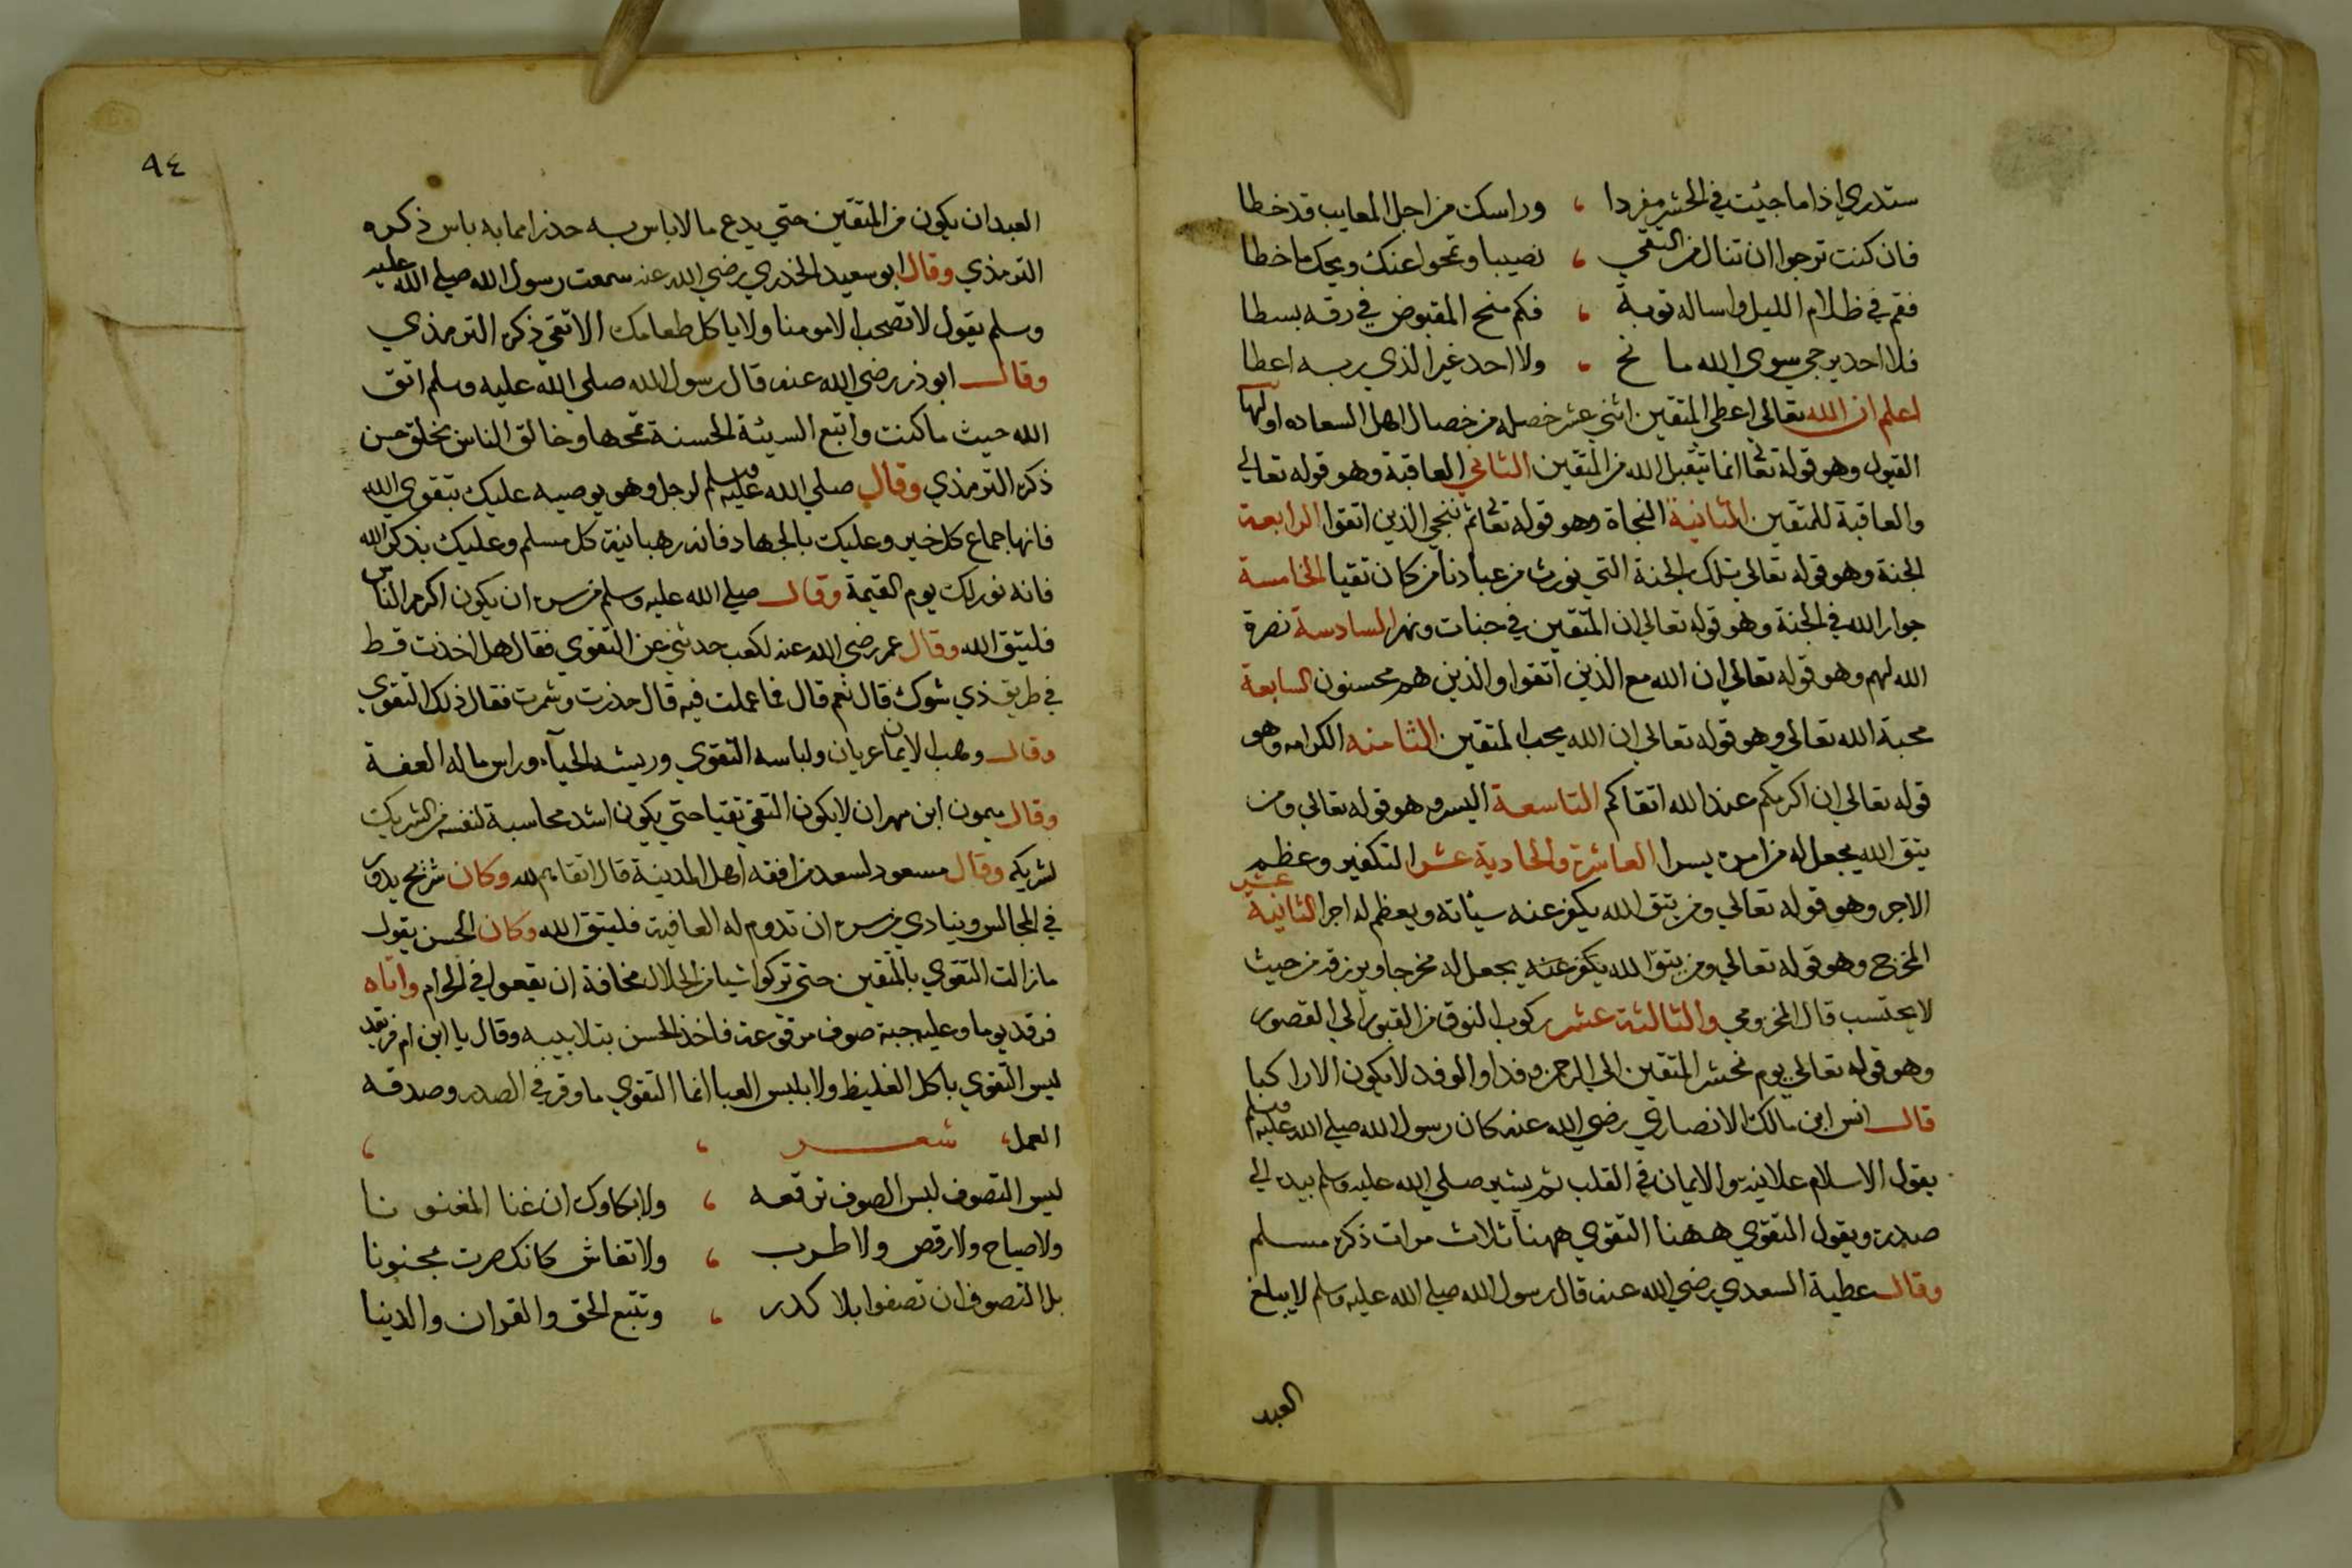 ستدري اذا ما جيئت في الحشر مفردا ، وراسك من اجل المعايب قد خطا
فان كنت ترجوا ان تنال من التقي ، نصيبا وتمحوا عنك ويحك ما خطا
فقم في ظلام الليل واساله توبة ، فكم منح المقبوض في رقه بسطا
فلا احد يرجي سوي الله ما نح ، ولا احد غير الذي ربه اعطا
اعلم ان الله تعالي اعطي المتقين اثني عشر خصله من خصال اهل السعاده اولها
القبول وهو قوله تعا انما يتقبل الله من المتقين الثاني العاقبة وهو قوله تعالي
والعاقبة للمتقين الثانية النجاة وهو قوله تعا ثم ننجي الذين اتقوا الرابعة
الجنة وهو قوله تعالي تلك الجنة التي نورث من عبادنا من كان تقيا الخامسة
جوار الله في الجنة وهو قوله تعالي ان المتقين في جنات ونهر السادسة نصرة
الله لهم وهو قوله تعالي ان الله مع الذين اتقوا والذين هم محسنون السابعة
محبة الله تعالي وهو قوله تعالي ان الله يحب المتقين الثامنه الكرامه وهو
قوله تعالي ان اكرمكم عند الله اتقاكم التاسعة اليسر وهو قوله تعالي ومن
يتق الله يجعل له من امره يسرا العاشرة والحادية عشر التكفير وعظم
الاجر وهو قوله تعالي ومن يتق الله يكفر عنه سيئاته ويعظم له اجرا الثانية عشر
المخرج وهو قوله تعالي ومن يتق الله يكفر عنه يجعل له مخرجا ويرزقه من حيث
لا يحتسب قال المخزومي والثالثة عشر ركوب النوق من القبور الي القصور
وهو قوله تعالي يوم نحشر المتقين الي الرحمن وفدا والوفد لا يكون الا راكبا
قال انس ابن مالك الانصاري رضي الله عنه كان رسول الله صلي الله عليه وسلم
يقول الاسلام علانيه والايمان في القلب ثم يشير صلي الله عليه وسلم بيده الي
صدره ويقول التقوي ههنا التقوي ههنا ثلاث مرات ذكره مسلم
وقال عطية السعدي رضي الله عنه قال رسول الله صلي الله عليه وسلم لا يبلغ
العبد
٩٤
العبد ان يكون من المتقين حتي يدع ما لا باس به حذرا مما به باس ذكره
الترمذي وقال ابو سعيد الخدري رضي الله عنه سمعت رسول الله صلي الله عليه
وسلم يقول لا تصحب الا مومنا ولا ياكل طعامك الا تقي ذكره الترمذي
وقال ابو ذر رضي الله عنه قال رسول الله صلي الله عليه وسلم اتق
الله حيث ما كنت واتبع السيئة الحسنة تمحها وخالق الناس بخلق حسن
ذكره الترمذي وقال صلي الله عليه وسلم لرجل وهو يوصيه عليك بتقوي الله
فانها جماع كل خير وعليك بالجهاد فانه رهبانية كل مسلم وعليك بذكر الله
فانه نور لك يوم القيمة وقال صلي الله عليه وسلم من سره ان يكون اكرم الناس
فليتق الله وقال عمر رضي الله عنه لكعب حدثني عن التقوي فقال هل اخذت قط
في طريق ذي شوك قال نعم قال فما عملت فيه قال حذرت وشمرت فقال ذلك التقوي
وقال وهب الايمان عريان ولباسه التقوي وريشه الحيآء وراس ماله العفة
وقال ميمون ابن مهران لا يكون التقي تقيا حتي يكون اشد محاسبة لنفسه من الشريك
لشريكه وقال مسعود لسعد من افقه اهل المدينة قال اتقاهم لله وكان شريح يدور
في المجالس وينادي من سره ان تدوم له العافية فليتق الله وكان الحسن يقول
ما زالت التقوي بالمتقين حتي تركوا شيا من الحلال مخافة ان يقعوا في الحرام واتاه
فرقد يوما وعليه جبة صوف مرقوعة فاخذ الحسن بتلابيبه وقال يا ابن ام فريقد
ليس التقوي باكل الغليظ ولا بلبس العبا انما التقوي ما وقر في الصدر وصدقه
العمل ، شعر ، ،
ليس التصوف لبس الصوف ترقعه ، ولا بكاوك ان غنا المغنونا
ولا صياح ولا رقص ولا طرب ، ولا تغاش كانك صرت مجنونا
بل التصوف ان تصفوا بلا كدر ، وتتبع الحق والقران والدينا